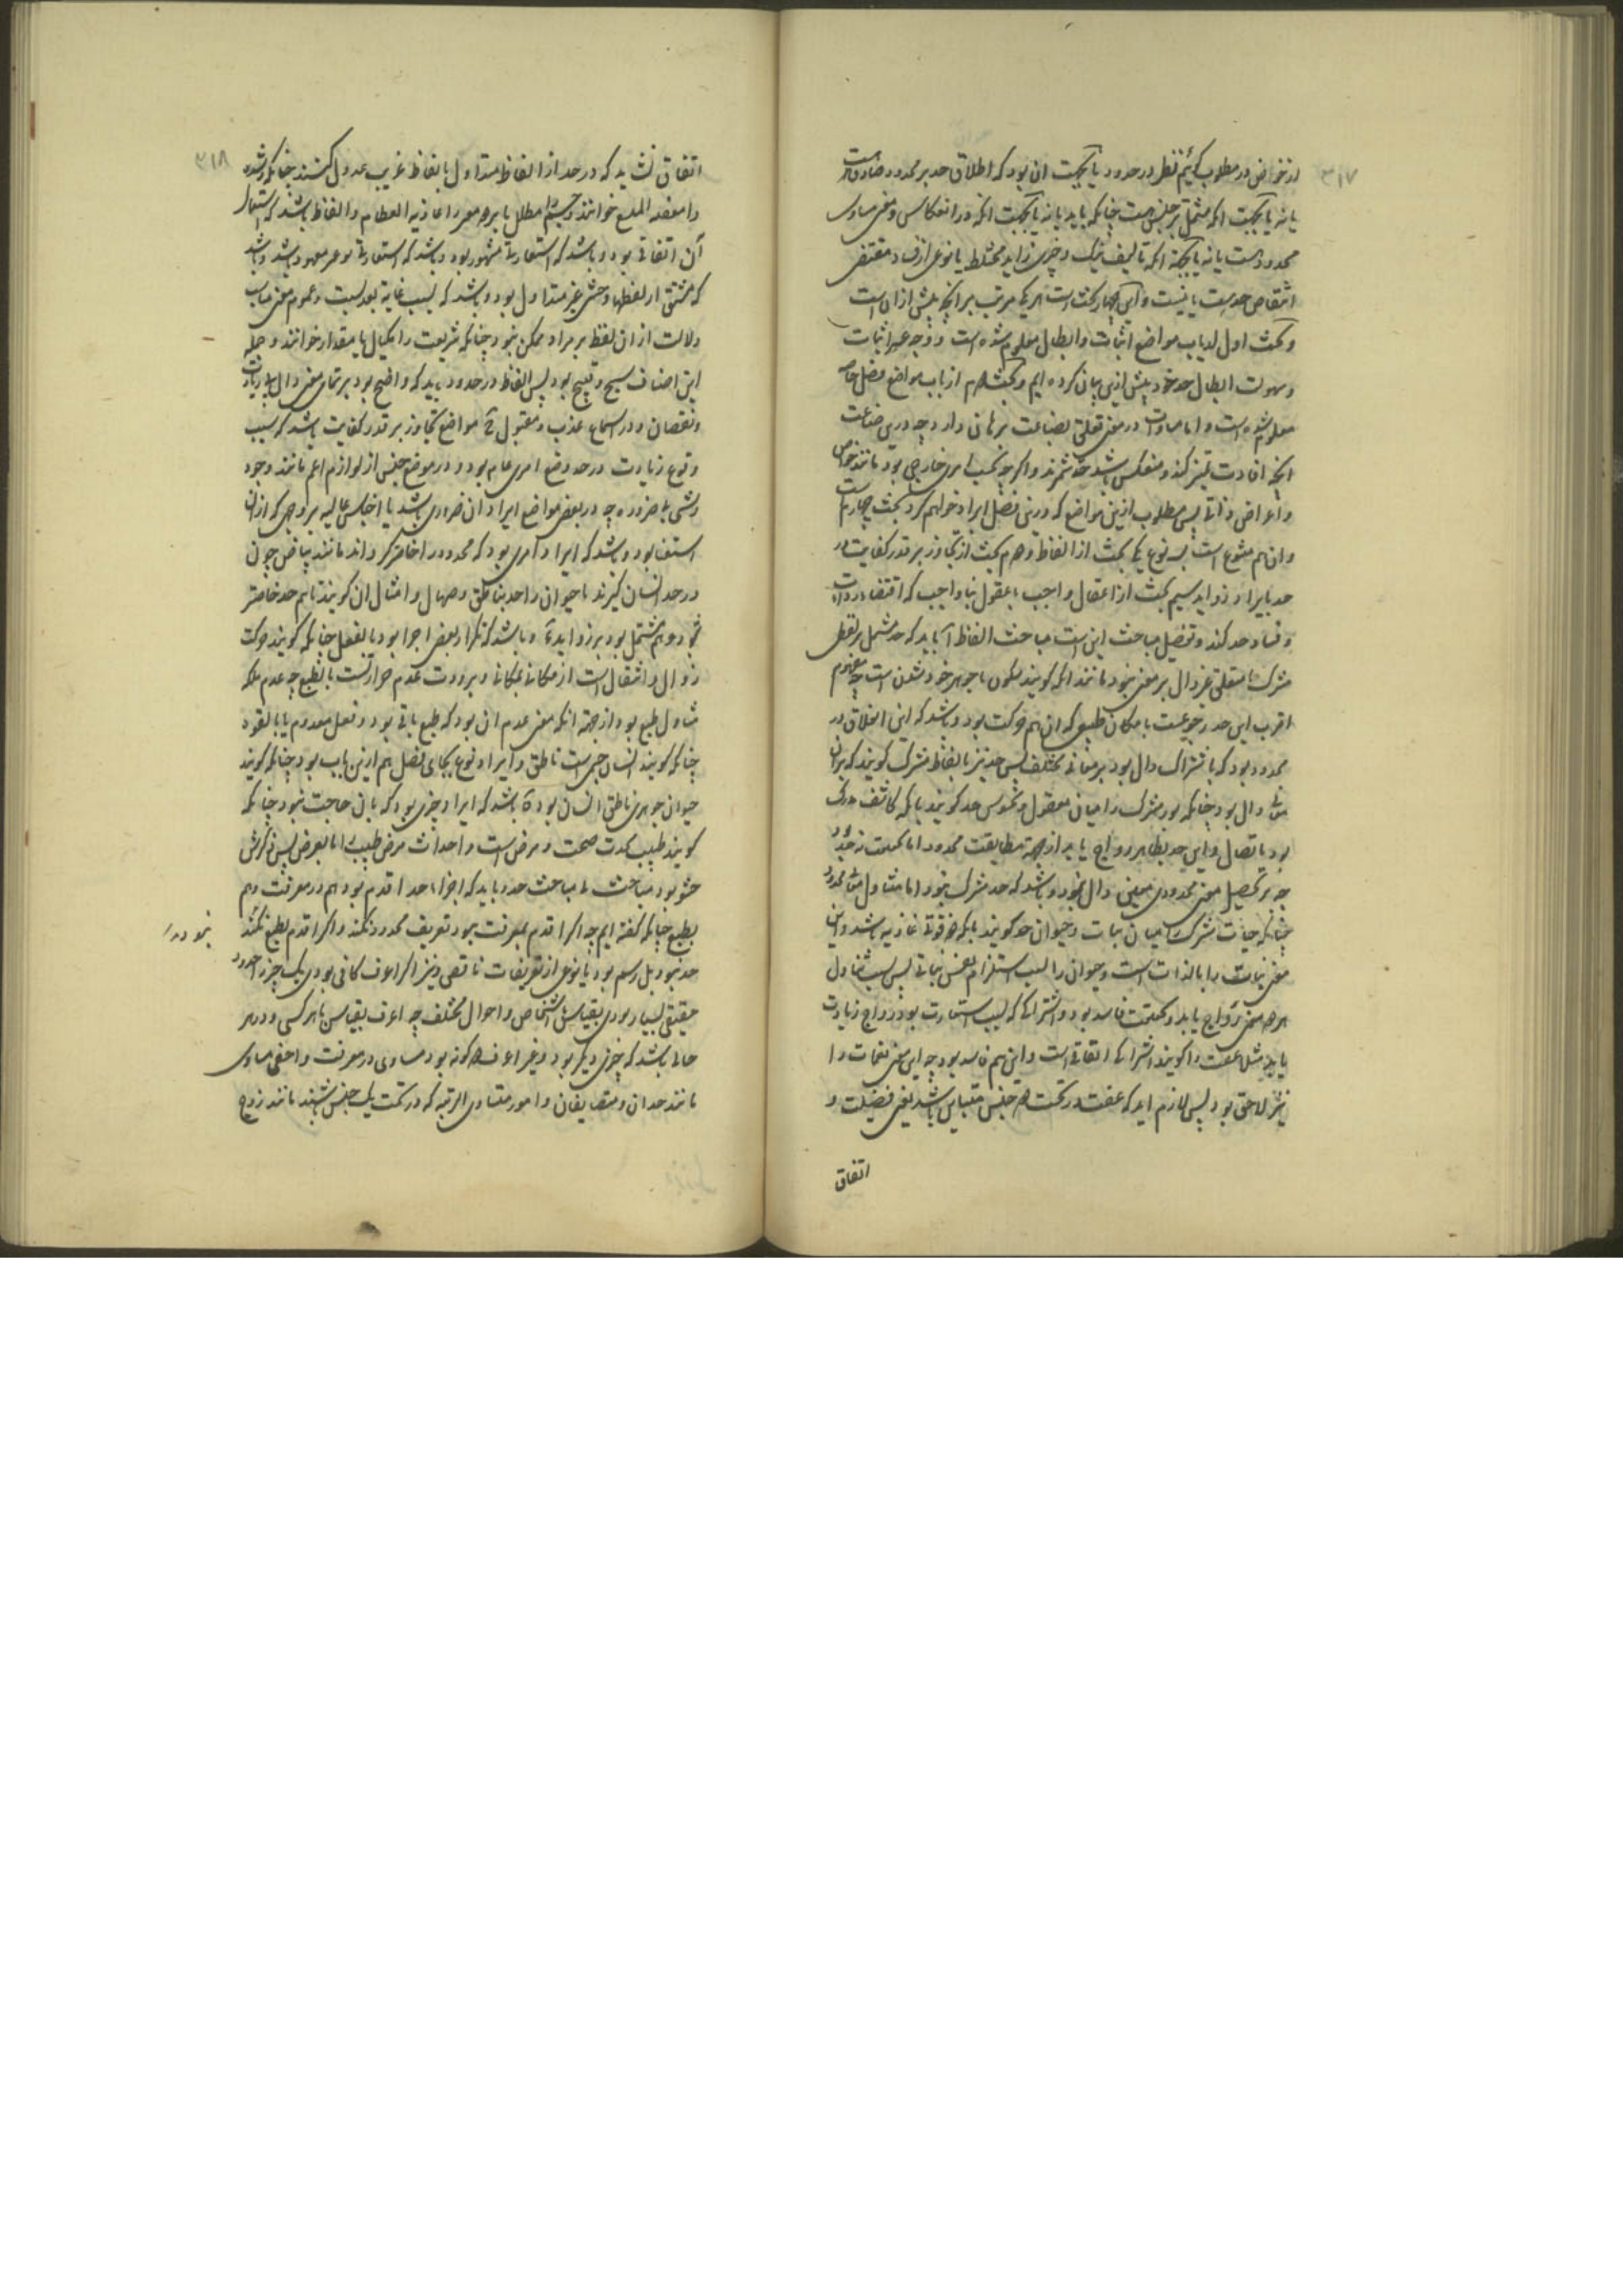 ۳۱۷
از خواص در مطلوب کنیم نظر در حدود یا بجهت آن بود که اطلاق حد بر محدود صادق است
یا نه یا بجهت آنکه مشتمل بر جنس هست چنانکه باید یا نه یا بجهت آنکه در انعکاس و معنی مساوی
محدود هست یا نه یا بجهة آنکه تالیف نیک و چیزی زاید مختلط یا نوعی از فساد مقتضی
انتقاص حد هست یا نیست و این چهار بحث است هر یک مرتب بر آنچه پیش از آن است
و بحث اول از باب مواضع اثبات و ابطال معلوم شده است و وجه عسر اثبات
و سهولت ابطال حد خود پیش ازین بیان کرده ایم و بحث دوم از باب مواضع فصل خاص
معلوم شده است و اما مساوات در معنی تعلق بصناعت برهان دارد چه درین صناعت
آنچه افادت تمیز کند و منعکس باشد حد شمرند و اگر چه بحسب امری خارجی بود مانند خواص
و اعراض ذاتی پس مطلوب ازین مواضع که درین فصل ایراد خواهیم کرد بحث چهارم است
و آن هم متنوع است بسه نوع یکی بحث از الفاظ دوم بحث از تجاوز بر قدر کفایت در
حد بایراد زواید سیم بحث از اغفال واجب یا عقول بناواجب که اقتضاء رداءت
و فساد حد کند و تفصیل مباحث این است مباحث الفاظ آ باید که حد مشتمل بر لفظی
مشترک یا متعلق غیر دال بر معنی نبود مانند آنکه گویند سکون با جوهر خود شدن است چه مفهوم
اقرب این حد رجوعیست با مکان طبیعی که آن هم حرکت بود و باشد که این اخلاق در
محدود بود که باشتراک دال بود بر معانی مختلف پس حد نیز بالفاظ مشترک گویند که بر آن
معانی دال بود چنانکه بود مشترک را میان معقول و محسوس حد گویند بآنکه کاشف مدرک
بود باتصال و این حد بظاهر رواج یابد از جهة مطابقت محدود اما بحقیقت
جز بر تحصیل معنی محدودی معین دال نبود و باشد که حد مشترک نبود اما متناول معانی محدود
چنانکه حیات مشترک را میان نبات و حیوان حد گویند بآنکه قوتی غاذیه باشد و این
معنی نبات را بالذات است و حیوان را بسبب استلزام نفس نباتی پس بسبب تناول
هر دو معنی رواج یابد و بحقیقت فاسد بود و اشتراکی که بسبب استعارت بود رواج زیادت
یابد مثلا عفت را گویند اشتراکی اتفاقی است و این هم فاسد بود چه این معنی نغمات را
نیز لاحق بود پس لازم آید که عفت در تحت دو جنس متباین باشد یعنی فضیلت و
اتفاق
۳۱۸
اتفاق نشاید که در حد از الفاظ متداول بالفاظ غریب عدول کنند چنانکه
را خوانند و چشم را مطلل بابرو و مغز را غاذیه العظام و الفاظ باشد که استعمال
آن اتفاقی بود و باشد که استعارتی مشهور بود و باشد که استعارتی نو غیر معهود باشد و باشد
که مشتق از لفظهاء وحشی غیر متداول بود و باشد که بسبب غایة بعد نسبت و عموم معنی مناسب
دلالت از آن لفظ بر مراد ممکن نبود چنانکه شریعت را مکیال یا مقدار خوانند و جمله
این اصناف سمج و قبیح بود پس الفاظ در حدود باید که واضح بود بر تمامی معنی دال بی زیادت
و نقصان و در اسماع عذب و مقبول ۲ مواضع تجاوز بر قدر کفایت باشد که بسبب
وقوع زیادت در حد وضع امری عام بود در موضع جنس از لوازم اعم مانند وجود
و شی یا ضرورة چه در بعضی مواضع ایراد آن ضروری باشد یا اجناس عالیه بر وجهی که از آن
استغنا بود و باشد که ایراد امری بود که محدود را خاصتر گرداند مانند بیاض چون
در حد انسان گیرند یا حیوان را حد بناطق و صهال و امثال آن گویند تا هم حد خاصتر
شود و هم مشتمل بود بر زواید آ و باشد که تکرار بعضی اجزا بود بالفعل چنانکه گویند حرکت
زوال و انتقال است از مکانی بمکانی و برودت عدم حرارتست بالطبع چه عدم ملکه
متناول طبع بود از جهة آنکه معنی عدم آن بود که طبع باقی بود و فعل معدوم یا بالقوه
چنانکه گویند انسان حی است ناطق و ایراد نوع بجای فصل هم ازین باب بود چنانکه گویند
حیوان جوهری ناطق انسان بود ۵ باشد که ایراد چیزی بود که بآن حاجت نبود چنانکه
گویند طبیب محدث صحت و مرض است و احداث مرض طبیب را اما بعرض پس ذکرش
حشو بود مباحث ما مباحث حد باید که اجزاء حد اقدم بود هم در معرفت و هم
بطبع چنانکه گفته ایم چه اگر اقدم بمعرفت نبود تعریف محدود نکند و اگر اقدم بطبع نبود
حد نبود بل رسم بود یا نوعی از تعریفات ناقص و نیز اگر اعرف کافی بودی یک چیز را حدود
حقیقی بسیار بودی بقیاس اشخاص و احوال مختلف چه اعرف بقیاس با هر کسی و در هر
حالی باشد که چیزی دیگر بود و غیر اعرف دو گونه بود مساوی در معرفت و اخفی مساوی
مانند ضدان و متضایفان و امور متساوی الرتبه که در تحت یک جنس باشند مانند زوج